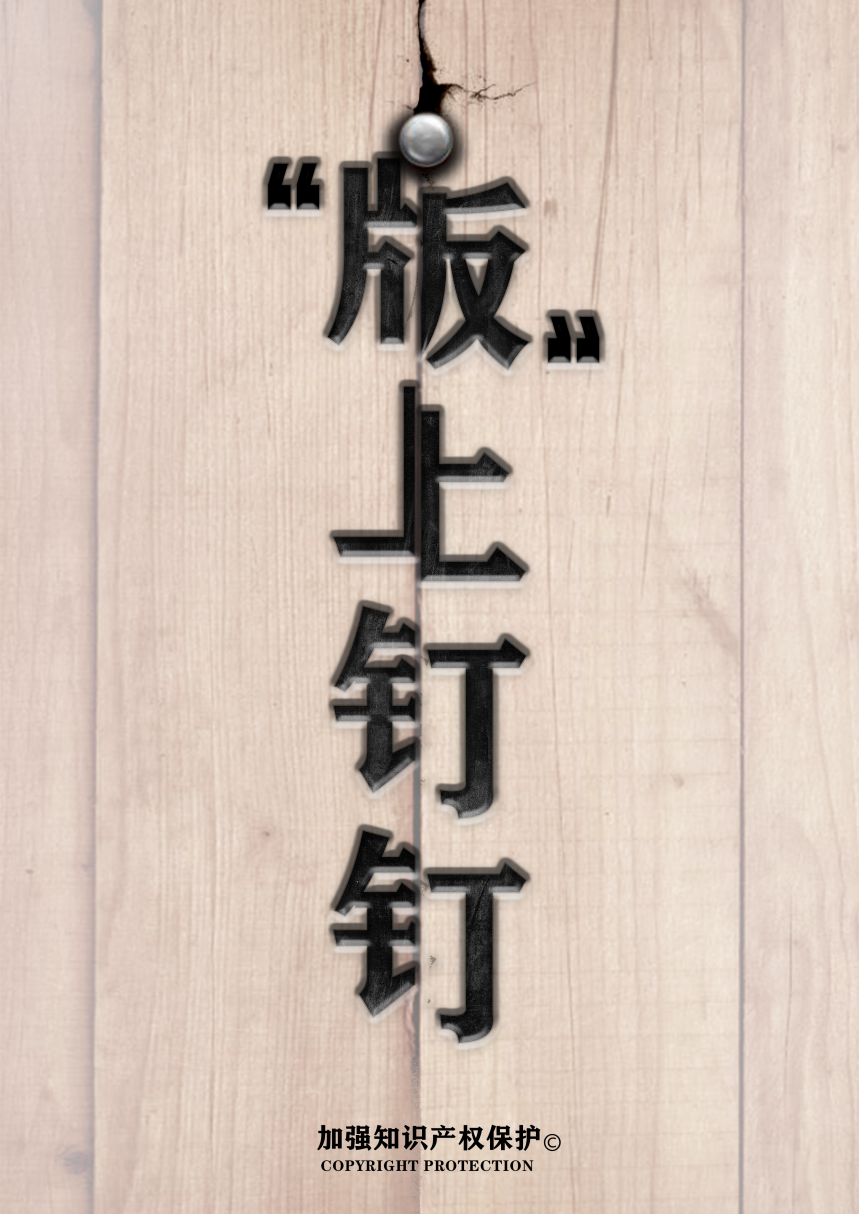 “版”上钉钉
加强知识产权保护©
COPYRIGHT PROTECTION